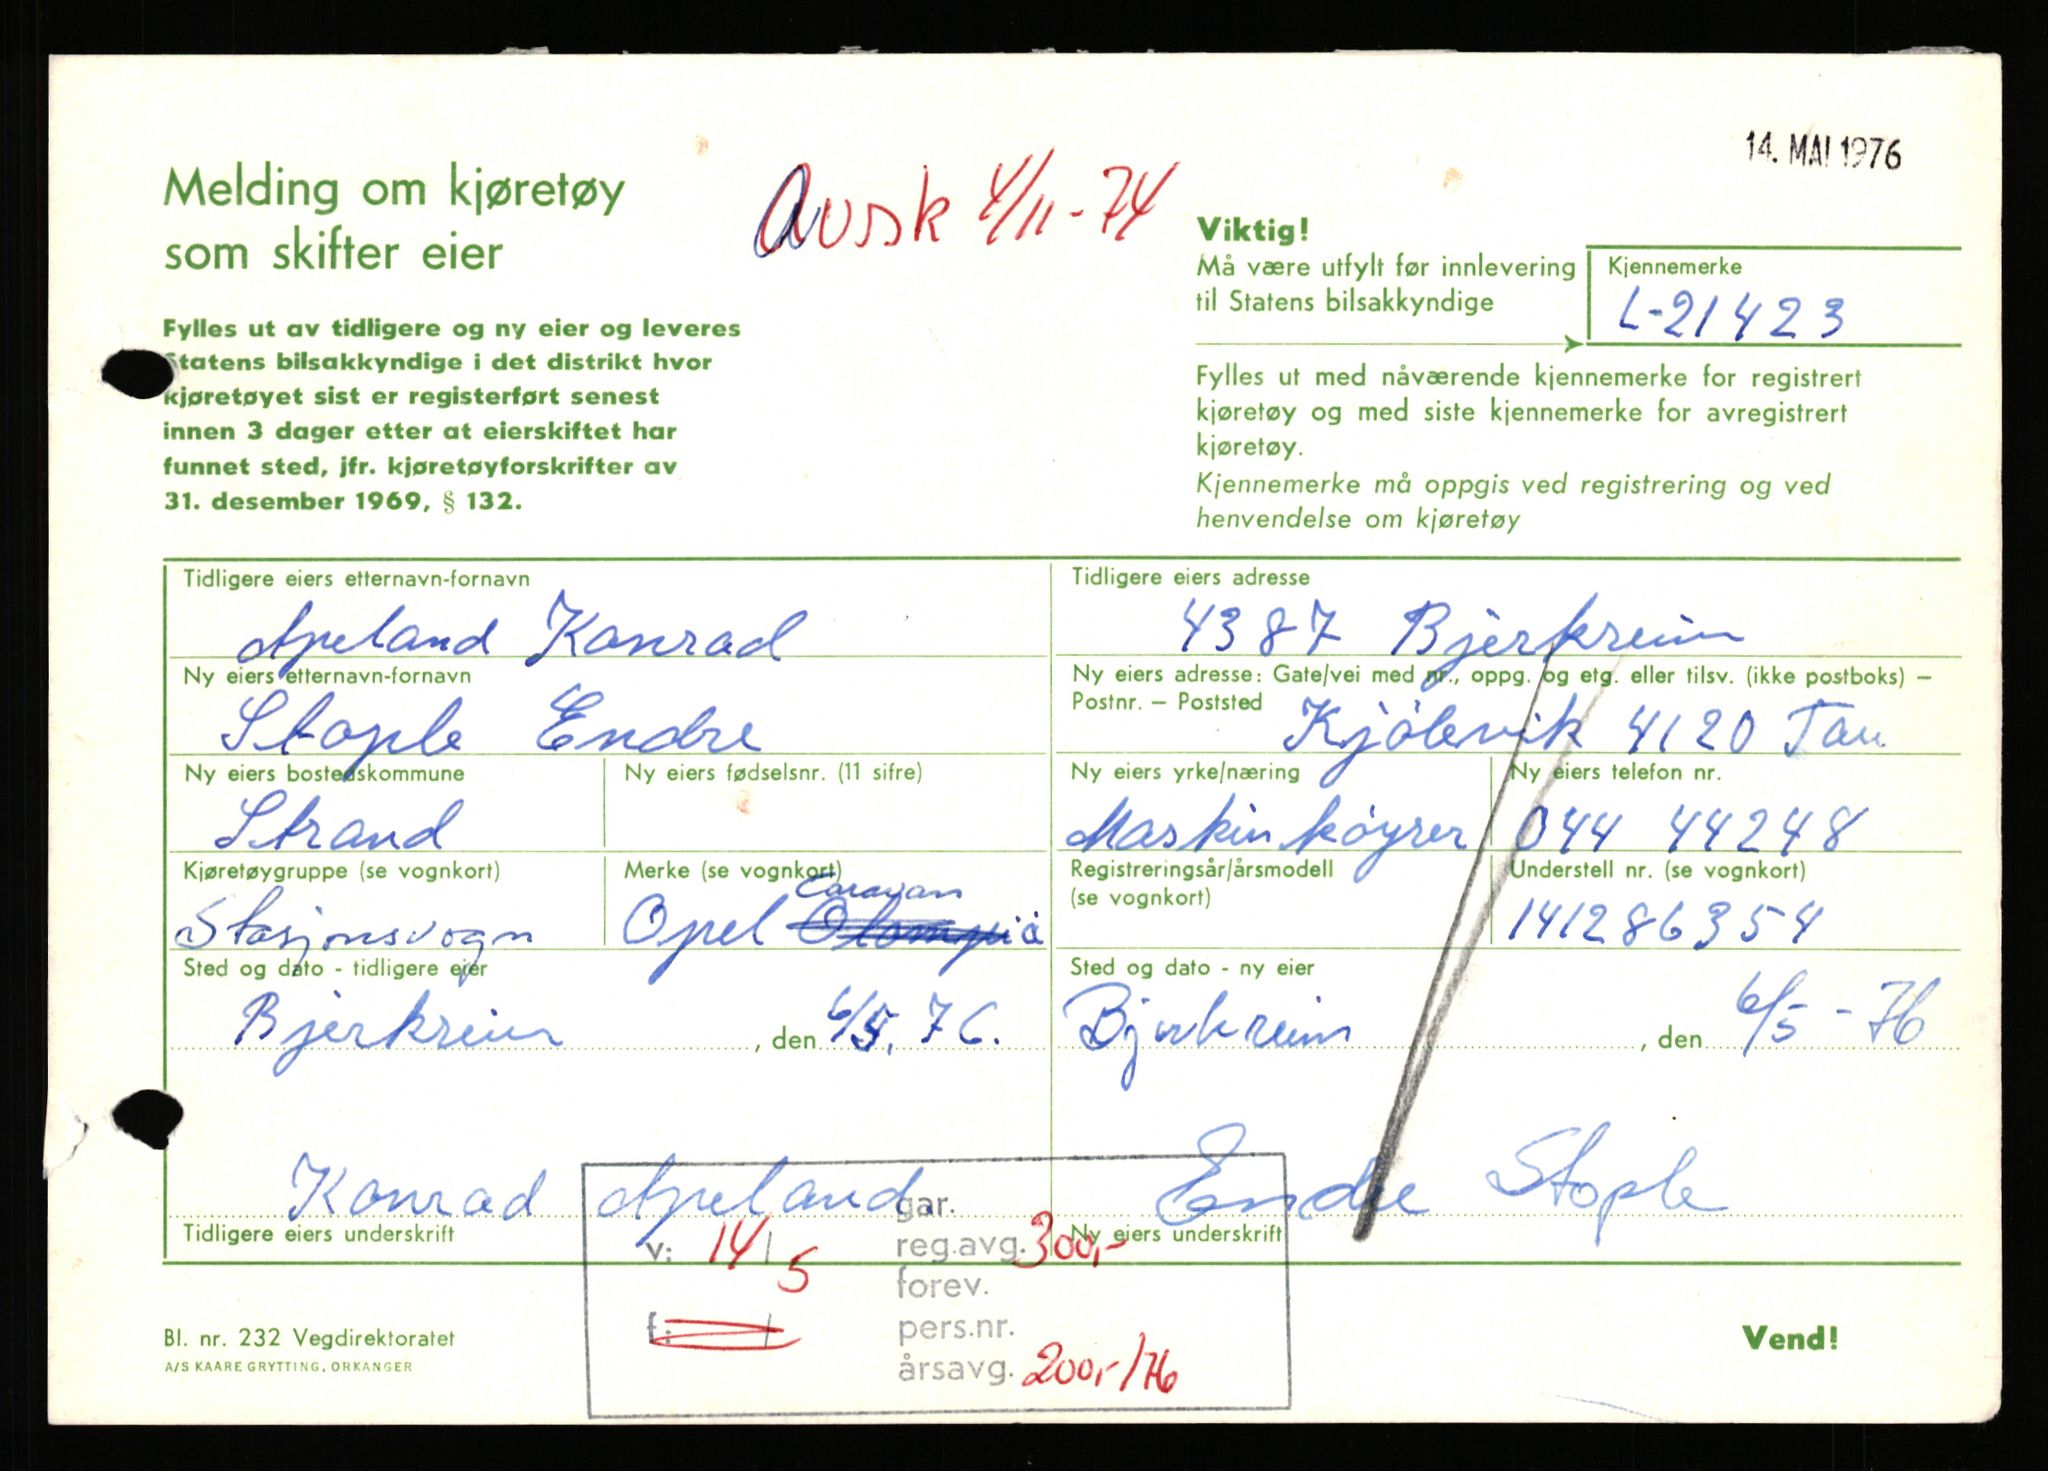 14. MAI 1976
Melding om kjøretøy
som skifter eier
Avsk 4/11-74
Fylles ut av tidligere og ny eier og leveres
Statens bilsakkyndige i det distrikt hvor
kjøretøyet sist er registerført senest
innen 3 dager etter at eierskiftet har
funnet sted, jfr. kjøretøyforskrifter av
31. desember 1969, § 132.
Viktig!
Må være utfylt før innlevering
til Statens bilsakkyndige
Kjennemerke
L-21423
Fylles ut med nåværende kjennemerke for registrert
kjøretøy og med siste kjennemerke for avregistrert
kjøretøy.
Kjennemerke må oppgis ved registrering og ved
henvendelse om kjøretøy
Tidligere eiers etternavn-fornavn
Apeland Konrad
Tidligere eiers adresse
4387 Bjerkreim
Ny eiers etternavn-fornavn
Stople Endre
Ny eiers adresse: Gate/vei med nr., oppg. og etg. eller tilsv. (ikke postboks) –
Postnr. – Poststed
Kjölevik 4120 Tau
Ny eiers bostedskommune
Strand
Ny eiers fødselsnr. (11 sifre)
Ny eiers yrke/næring
Maskinkøyrer
Ny eiers telefon nr.
044 44248
Kjøretøygruppe (se vognkort)
Stasjonsvogn
Merke (se vognkort)
Caravan
Opel Olompia
Registreringsår/årsmodell
(se vognkort)
Understell nr. (se vognkort)
141286354
Sted og dato - tidligere eier
Bjerkreim, den 6/5. 76.
Sted og dato - ny eier
Bjerkreim, den 6/5-76
Konrad Apeland
Tidligere eiers underskrift
Endre Stople
Ny eiers underskrift
gar.
v: 14/5
reg.avg. 300,-
forev.
f: /
pers.nr.
årsavg. 200,-/76
Bl. nr. 232 Vegdirektoratet
A/S KAARE GRYTTING, ORKANGER
Vend!